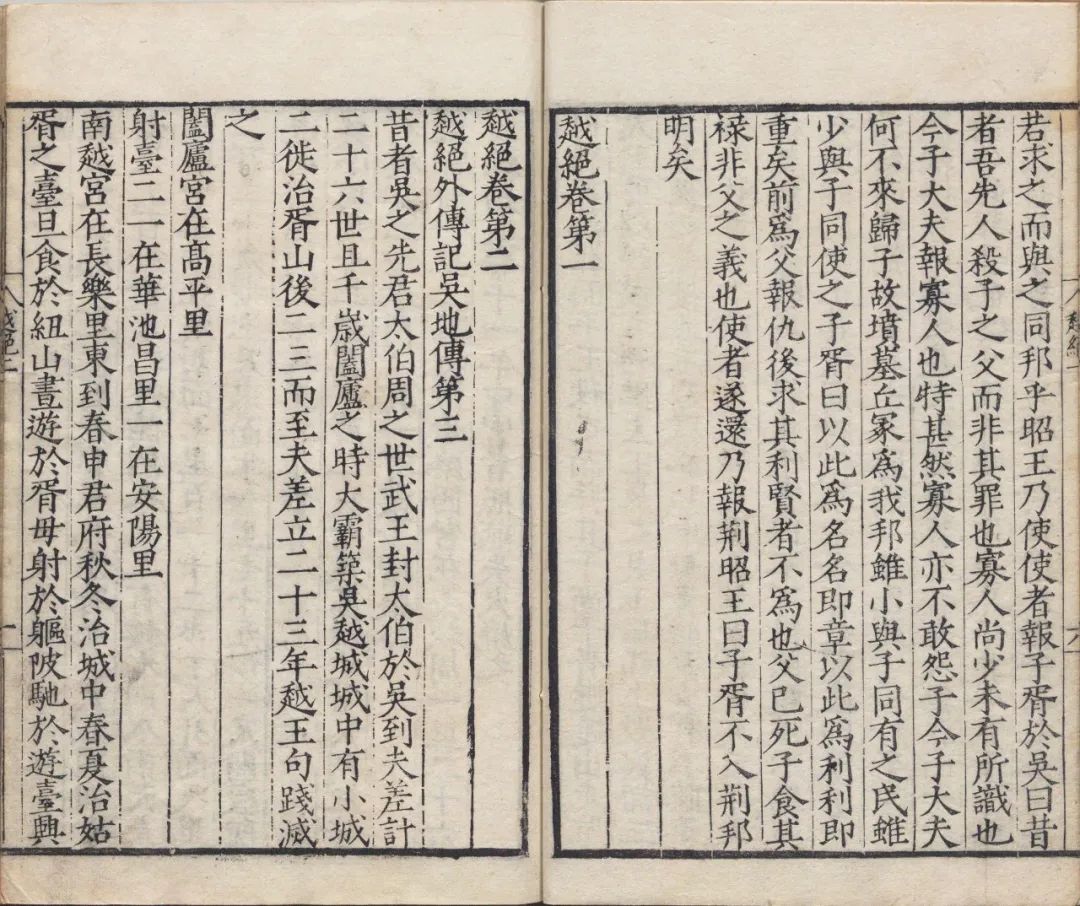 若求之而與之同邦乎昭王乃使使者報子胥於吳曰昔
者吾先人殺子之父而非其罪也寡人尚少未有所識也
今子大夫報寡人也特甚然寡人亦不敢怨子今子大夫
何不來歸子故墳墓丘冢爲我邦雖小與子同有之民雖
少與子同使之子胥曰以此爲名名即章以此爲利利即
重矣前爲父報仇後求其利賢者不爲也父已死子食其
祿非父之義也使者遂還乃報荆昭王曰子胥不入荆邦
明矣
越絕卷第一
越絕卷第二
越絕外傳記吳地傳第三
昔者吳之先君太伯周之世武王封太伯於吳到夫差計
二十六世且千歲闔廬之時大霸築吳越城城中有小城
二徙治胥山後二三而至夫差立二十三年越王句踐滅
之
闔廬宮在高平里
射臺二一在華池昌里一在安陽里
南越宮在長樂里東到春申君府秋冬治城中春夏治姑
胥之臺旦食於紐山晝遊於胥毋射於軀陂馳於遊臺興